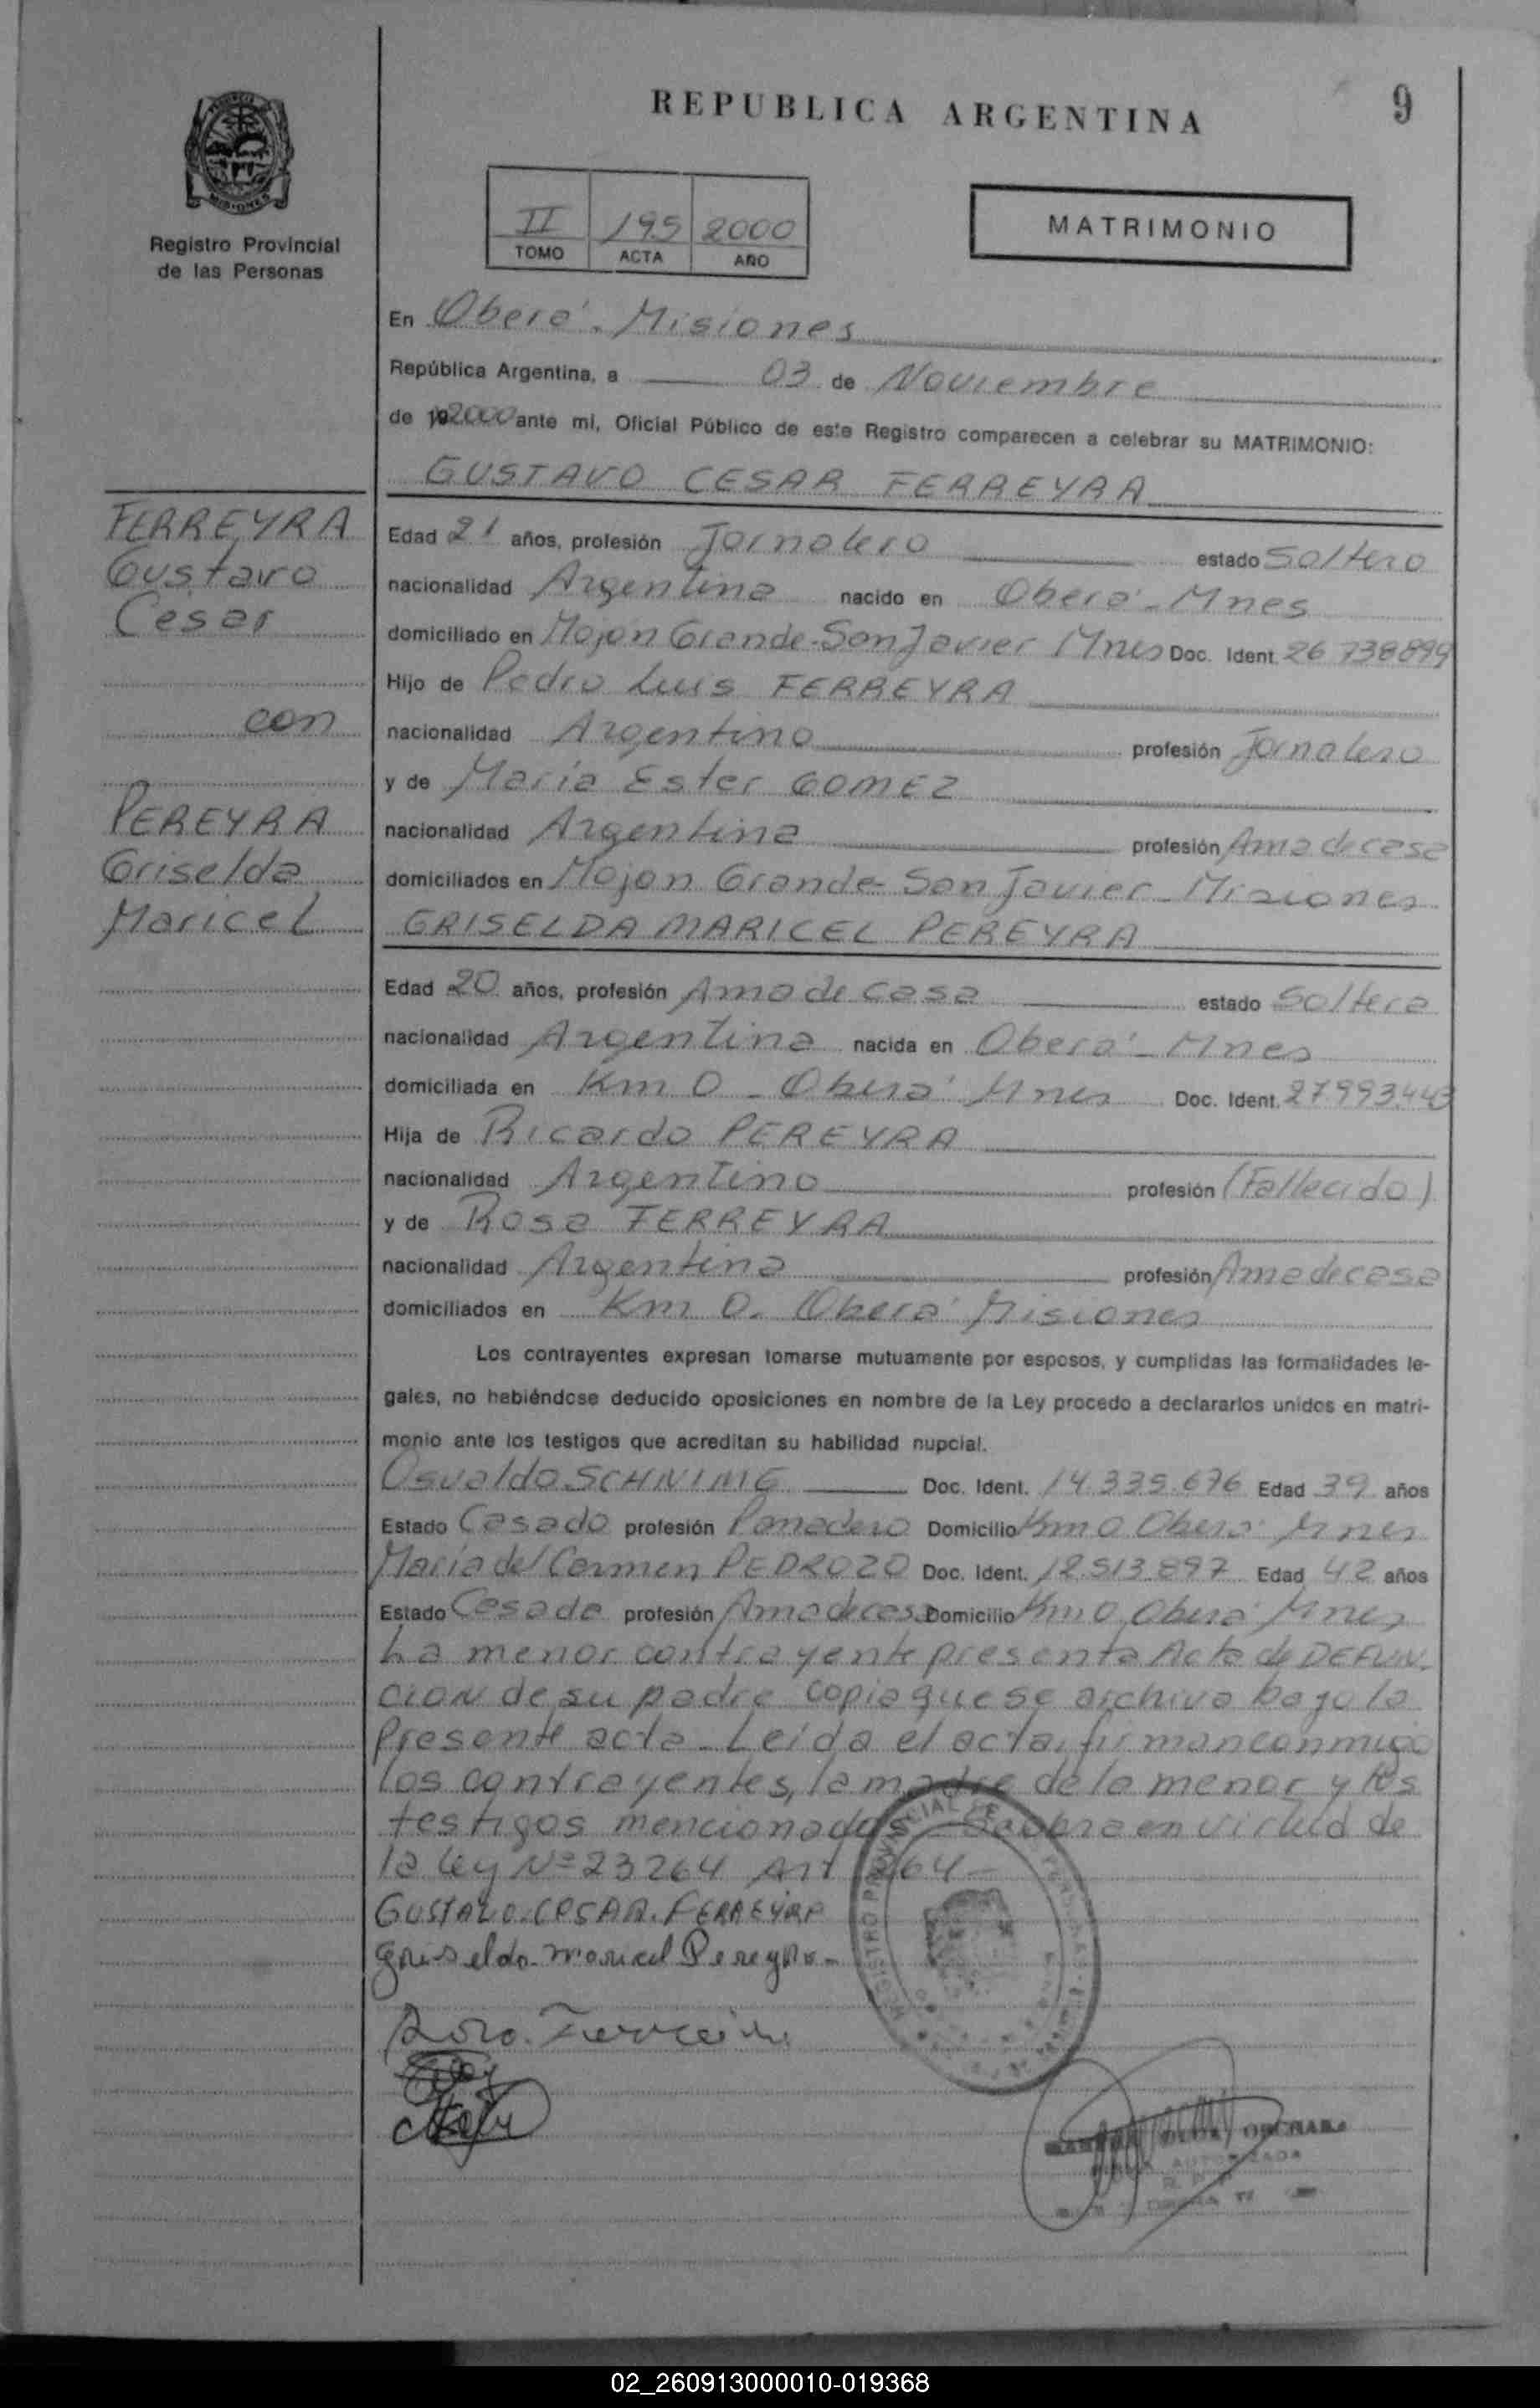 REPUBLICA ARGENTINA
9
MISIONES
Registro Provincial
de las Personas
II 195 2000
TOMO ACTA AÑO
MATRIMONIO
En Oberá. Misiones
República Argentina, a 03 de Noviembre
de 192000 ante mi, Oficial Público de este Registro comparecen a celebrar su MATRIMONIO:
GUSTAVO CESAR FERREYRA
FERREYRA
Gustavo
Cesar
con
PEREYRA
Griselda
Maricel
Edad 21 años, profesión Jornalero estado Soltero
nacionalidad Argentina nacido en Oberá - Mnes
domiciliado en Mojón Grande - San Javier Mnes Doc. Ident. 26 738899
Hijo de Pedro Luis FERREYRA
nacionalidad Argentino profesión Jornalero
y de María Ester GOMEZ
nacionalidad Argentina profesión Ama de casa
domiciliados en Mojon Grande - San Javier - Misiones
GRISELDA MARICEL PEREYRA
Edad 20 años, profesión Ama de casa estado Soltera
nacionalidad Argentina nacida en Oberá - Mnes
domiciliada en Km 0 - Oberá Mnes Doc. Ident. 27993.443
Hija de Ricardo PEREYRA
nacionalidad Argentino profesión (Fallecido)
y de Rosa FERREYRA
nacionalidad Argentina profesión Ama de casa
domiciliados en Km 0. Oberá Misiones
Los contrayentes expresan tomarse mutuamente por esposos, y cumplidas las formalidades le-
gales, no habiéndose deducido oposiciones en nombre de la Ley procedo a declararlos unidos en matri-
monio ante los testigos que acreditan su habilidad nupcial.
Osvaldo Doc. Ident. 14.335.676 Edad 39 años
Estado Casado profesión Panadero Domicilio Km 0 Oberá Mnes
María del Carmen PEDROZO Doc. Ident. 12.513.897 Edad 42 años
Estado Casada profesión Ama de casa Domicilio Km 0 Oberá Mnes
La menor contrayente presenta Acta de DEFUN-
CION de su padre copia que se archiva bajo la
presente acta - Leída el acta, firman conmigo
los contrayentes, la madre de la menor y los
testigos mencionados en virtud de
la Ley Nº 23264 Art 264 -
GUSTAVO. CESAR. FERREYRA
Griselda Maricel Pereyra -
REGISTRO PROVINCIAL DE
02_260913000010-019368